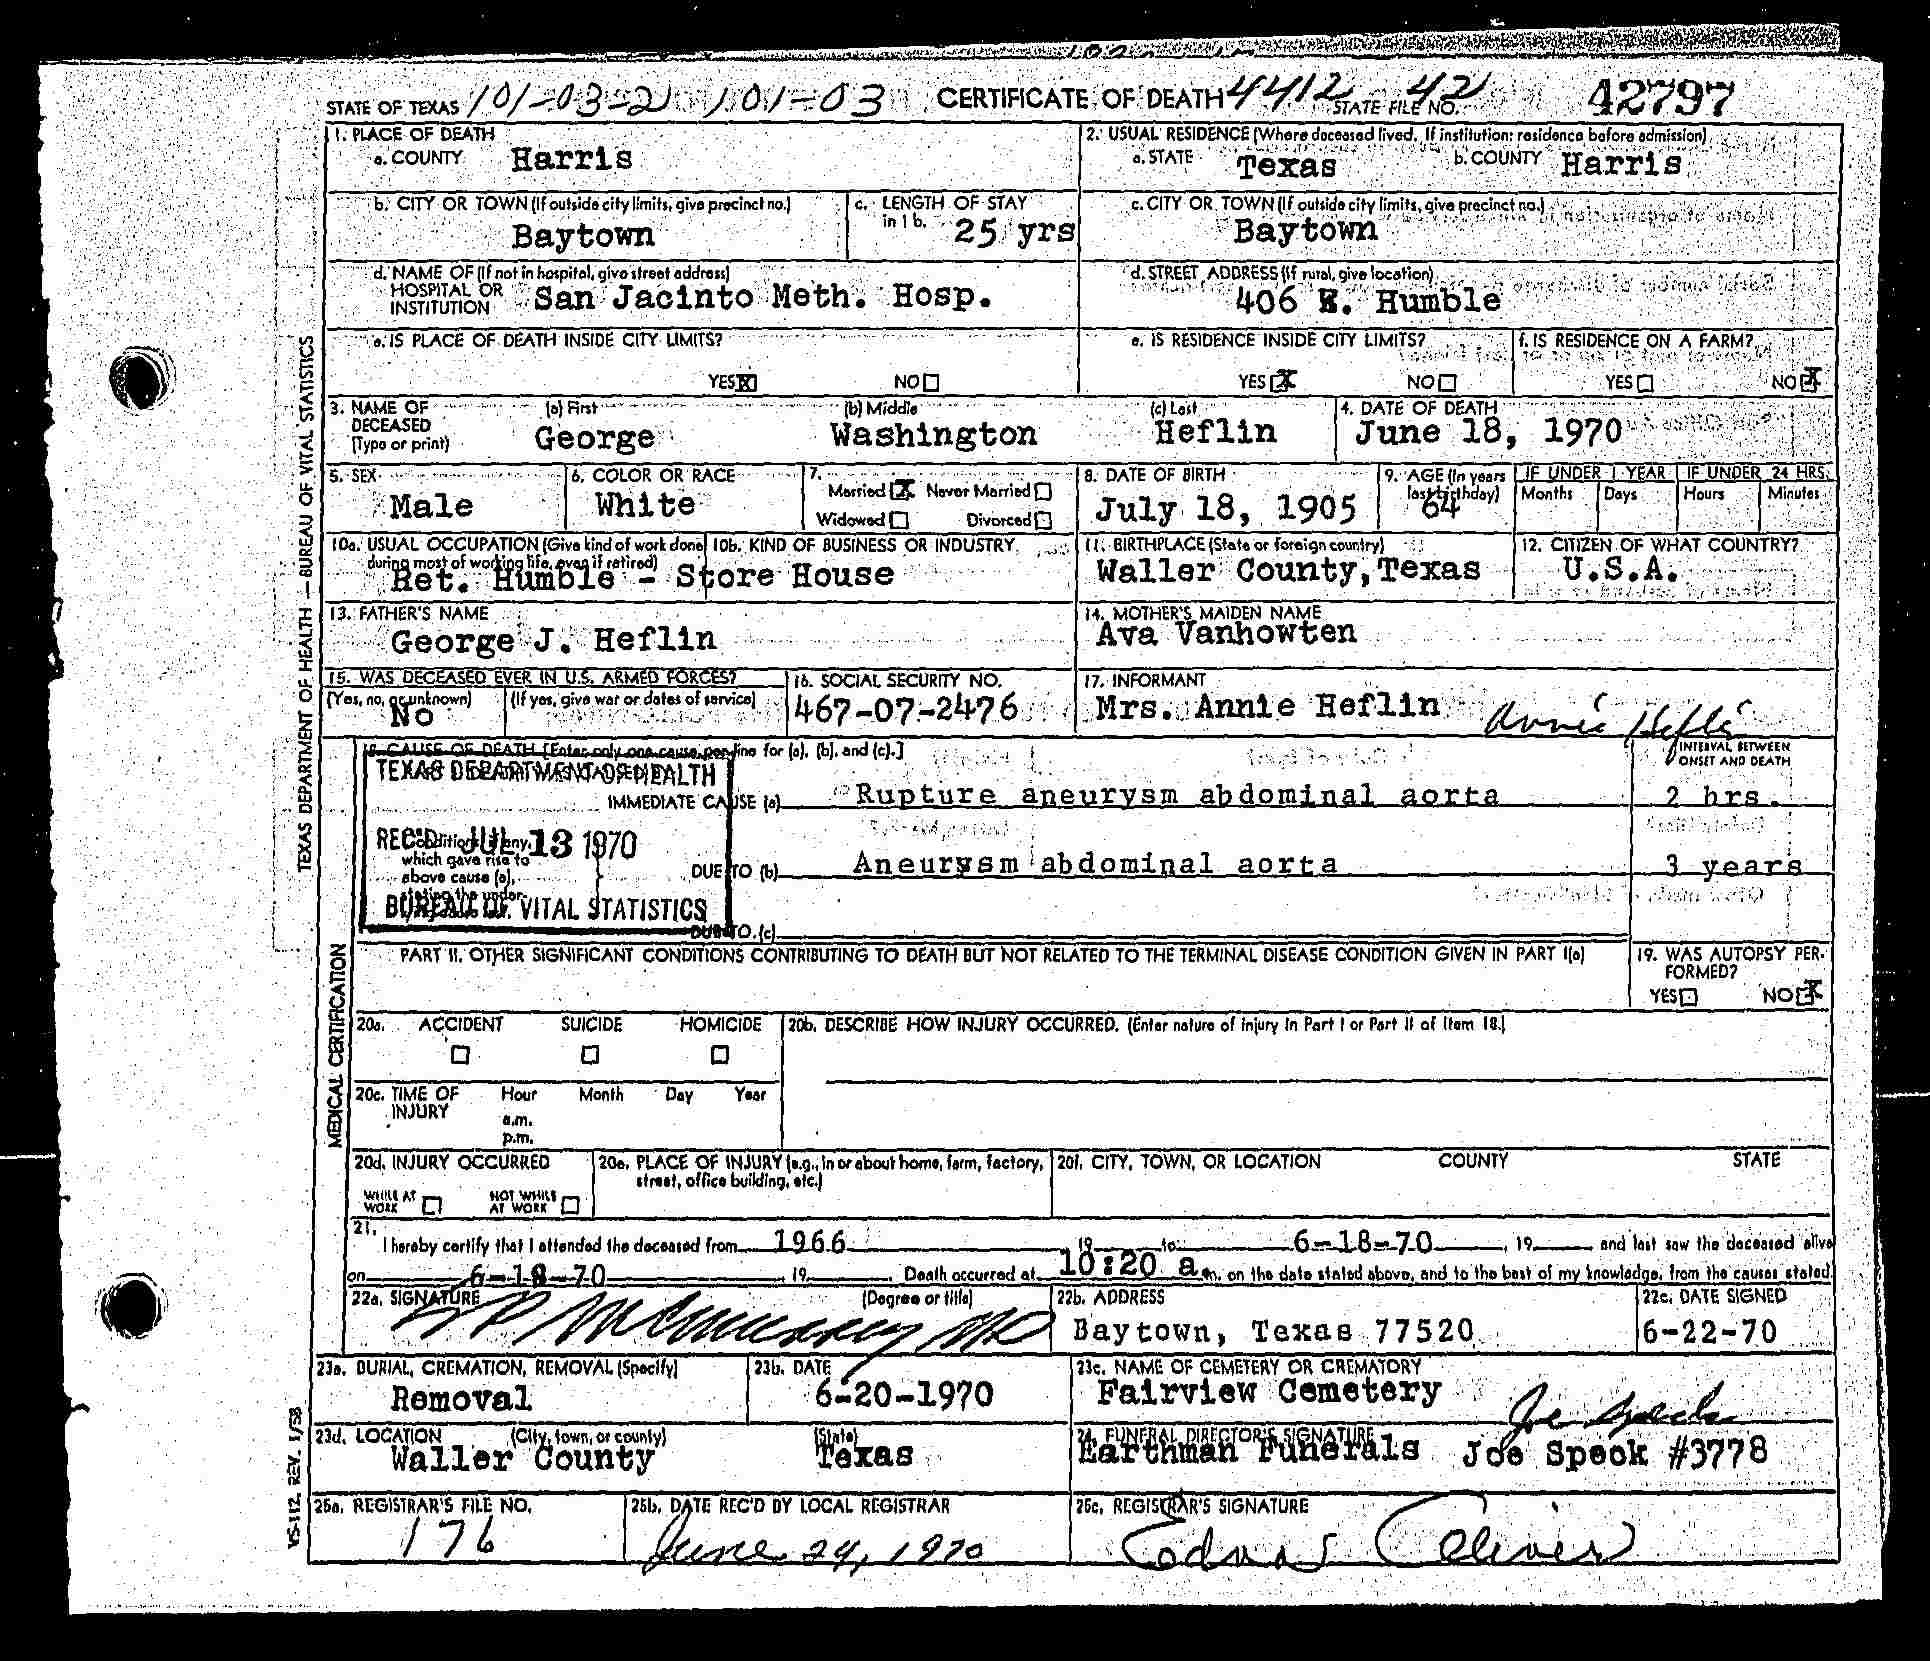 STATE OF TEXAS 101-03-2 101-03 CERTIFICATE OF DEATH 4412 STATE FILE NO. 42 42797
1. PLACE OF DEATH
a. COUNTY Harris
2. USUAL RESIDENCE (Where deceased lived. If institution: residence before admission)
a. STATE Texas b. COUNTY Harris
b. CITY OR TOWN (If outside city limits, give precinct no.)
Baytown
c. LENGTH OF STAY
in 1b. 25 yrs
c. CITY OR TOWN (If outside city limits, give precinct no.)
Baytown
d. NAME OF (If not in hospital, give street address)
HOSPITAL OR
INSTITUTION San Jacinto Meth. Hosp.
d. STREET ADDRESS (If rural, give location)
406 E. Humble
e. IS PLACE OF DEATH INSIDE CITY LIMITS?
YES NO
e. IS RESIDENCE INSIDE CITY LIMITS?
YES NO
f. IS RESIDENCE ON A FARM?
YES NO
3. NAME OF
DECEASED
(Type or print)
(a) First (b) Middle (c) Last
George Washington Heflin
4. DATE OF DEATH
June 18, 1970
5. SEX
Male
6. COLOR OR RACE
White
7.
Married Never Married
Widowed Divorced
8. DATE OF BIRTH
July 18, 1905
9. AGE (In years
last birthday)
64
IF UNDER 1 YEAR IF UNDER 24 HRS.
Months Days Hours Minutes
10a. USUAL OCCUPATION (Give kind of work done
during most of working life, even if retired)
10b. KIND OF BUSINESS OR INDUSTRY
Ret. Humble - Store House
11. BIRTHPLACE (State or foreign country)
Waller County, Texas
12. CITIZEN OF WHAT COUNTRY?
U.S.A.
13. FATHER'S NAME
George J. Heflin
14. MOTHER'S MAIDEN NAME
Ava Vanhowten
15. WAS DECEASED EVER IN U.S. ARMED FORCES?
(Yes, no, or unknown) (If yes, give war or dates of service)
No
16. SOCIAL SECURITY NO.
467-07-2476
17. INFORMANT
Mrs. Annie Heflin Annie Heflin
18. CAUSE OF DEATH [Enter only one cause per line for (a), (b), and (c).]
INTERVAL BETWEEN
ONSET AND DEATH
TEXAS DEPARTMENT OF HEALTH
IMMEDIATE CAUSE (a) Rupture aneurysm abdominal aorta 2 hrs.
REC'D JUL 13 1970
Conditions, if any,
which gave rise to
above cause (a),
stating the under-
DUE TO (b) Aneurysm abdominal aorta 3 years
BUREAU OF VITAL STATISTICS
DUE TO (c)
PART II. OTHER SIGNIFICANT CONDITIONS CONTRIBUTING TO DEATH BUT NOT RELATED TO THE TERMINAL DISEASE CONDITION GIVEN IN PART I(a)
19. WAS AUTOPSY PER-
FORMED?
YES NO
20a. ACCIDENT SUICIDE HOMICIDE
20b. DESCRIBE HOW INJURY OCCURRED. (Enter nature of injury in Part I or Part II of Item 18.)
20c. TIME OF
INJURY
Hour Month Day Year
a.m.
p.m.
20d. INJURY OCCURRED
WHILE AT
WORK
NOT WHILE
AT WORK
20e. PLACE OF INJURY (e.g., in or about home, farm, factory,
street, office building, etc.)
20f. CITY, TOWN, OR LOCATION COUNTY STATE
21.
I hereby certify that I attended the deceased from 1966 19 to 6-18-70, 19 and last saw the deceased alive
on 6-18-70, 19 . Death occurred at 10:20 a.m. on the date stated above, and to the best of my knowledge, from the causes stated.
22a. SIGNATURE (Degree or title)
McMurrey MD
22b. ADDRESS
Baytown, Texas 77520
22c. DATE SIGNED
6-22-70
23a. BURIAL, CREMATION, REMOVAL (Specify)
Removal
23b. DATE
6-20-1970
23c. NAME OF CEMETERY OR CREMATORY
Fairview Cemetery
23d. LOCATION (City, town, or county) (State)
Waller County Texas
Joe Speck
24. FUNERAL DIRECTOR'S SIGNATURE
Earthman Funerals Joe Speck #3778
25a. REGISTRAR'S FILE NO.
176
25b. DATE REC'D BY LOCAL REGISTRAR
June 24, 1970
25c. REGISTRAR'S SIGNATURE
Edna Oliver
TEXAS DEPARTMENT OF HEALTH — BUREAU OF VITAL STATISTICS
MEDICAL CERTIFICATION
VS-112 REV. 1/58